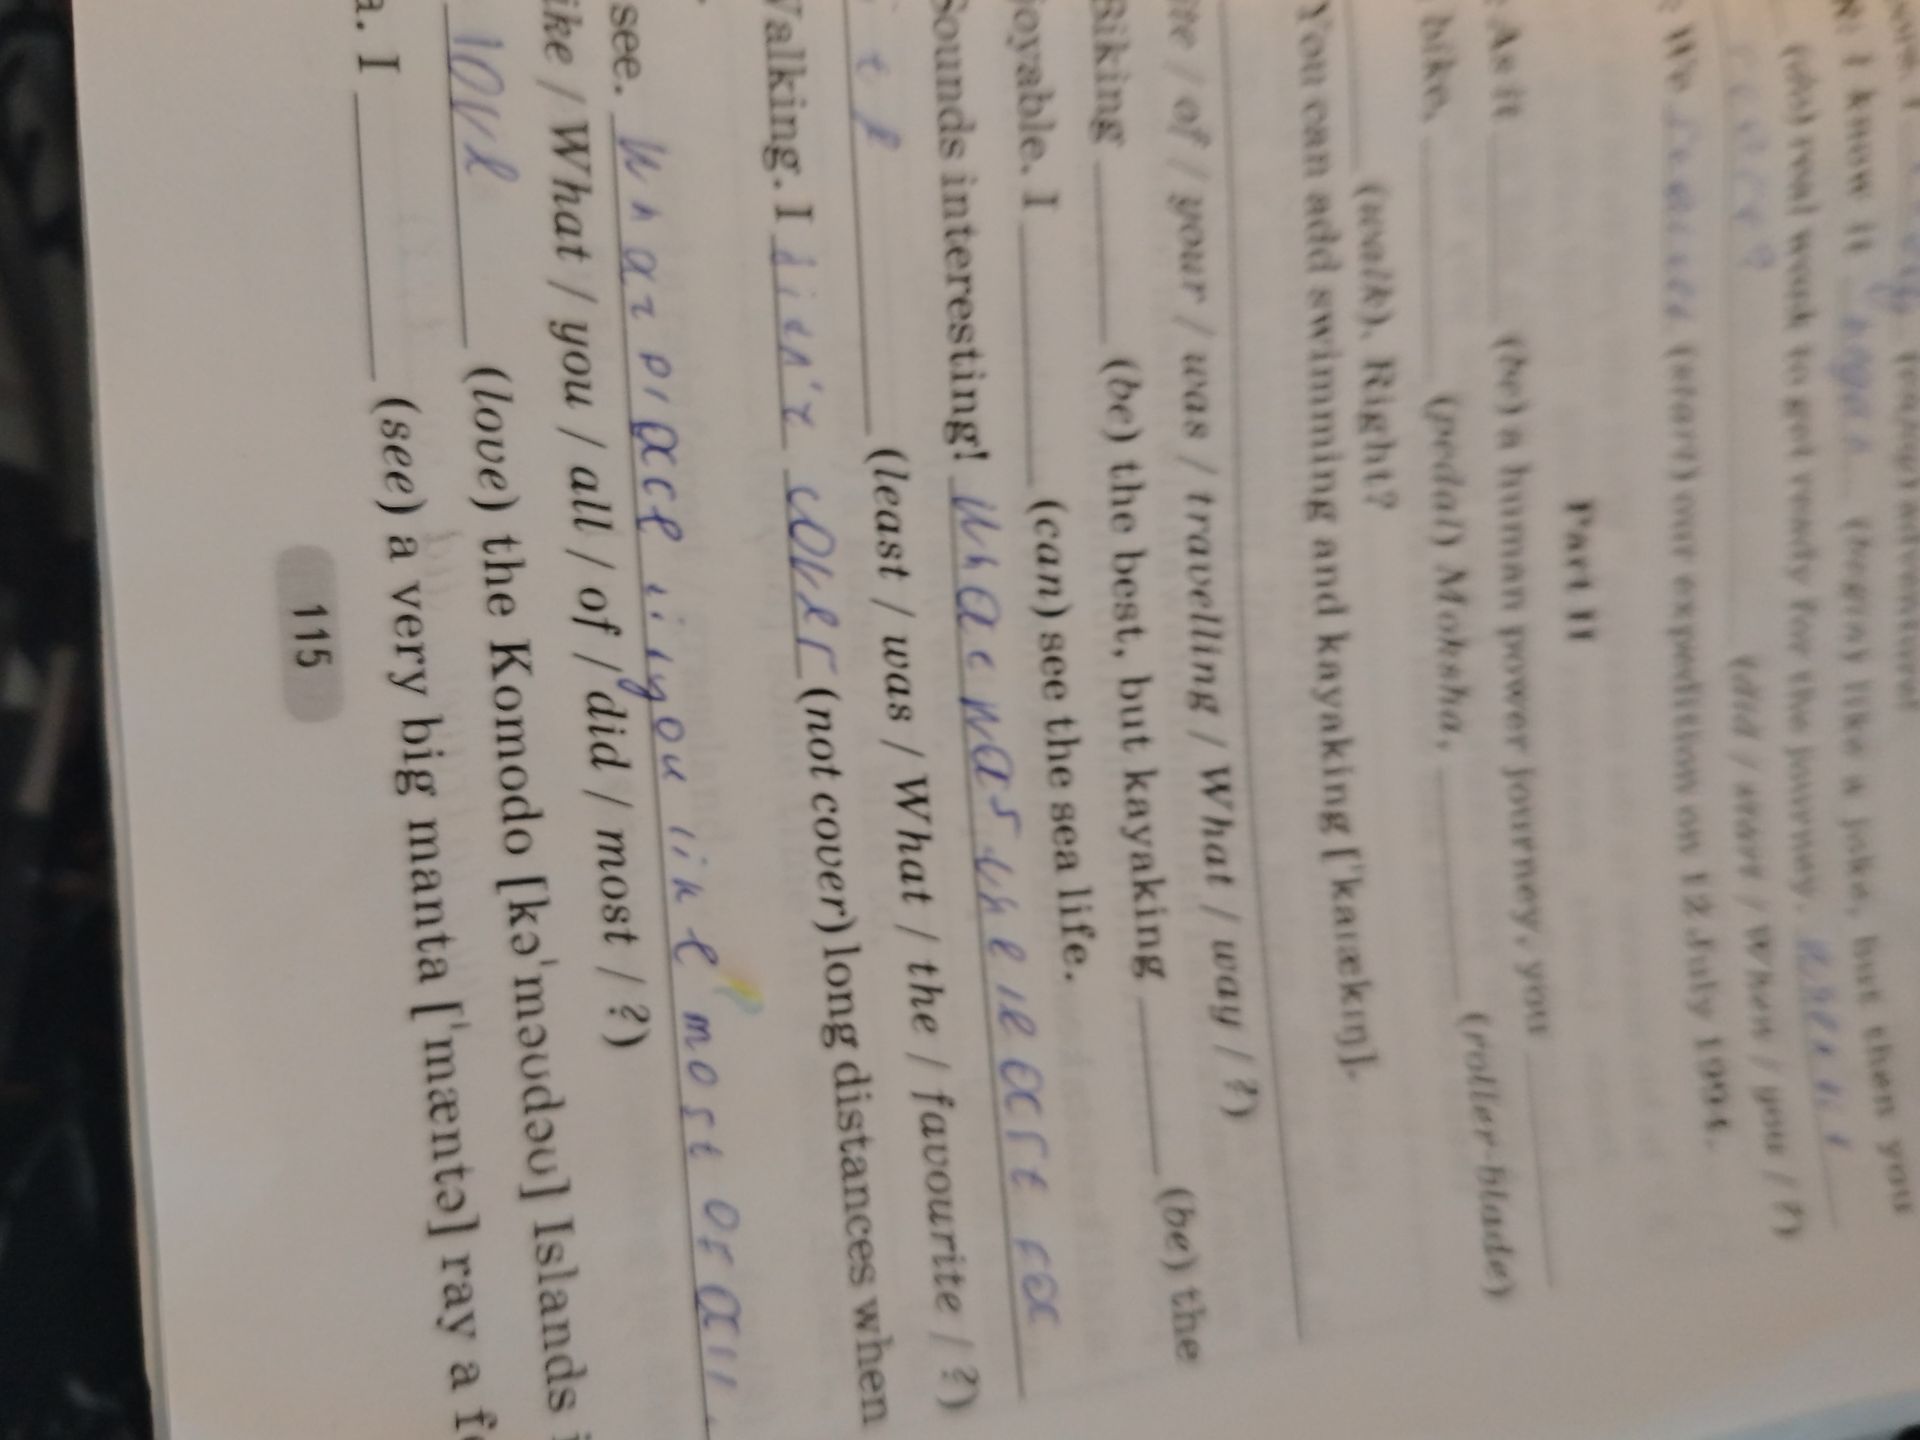 N: I know it began (began) like a joke, but then you
(do) real work to get ready for the journey. When did
(did / start / When / you / ?)
start?
: We (start) our expedition on 12 July 1994.
Part II
: As it (be) a human power journey, you
bike, (pedal) Moksha, (roller-blade)
(walk). Right?
You can add swimming and kayaking ['kaɪækɪŋ].
ite / of / your / was / travelling / What / way / ?)
Biking (be) the best, but kayaking (be) the
joyable. I (can) see the sea life.
Sounds interesting! What was the least fa
(least / was / What / the / favourite / ?)
Walking. I didn't cover (not cover) long distances when
see. What place did you like most of all
ike / What / you / all / of / did / most / ?)
love (love) the Komodo [kə'məʊdəʊ] Islands i
a. I (see) a very big manta ['mæntə] ray a fe
115